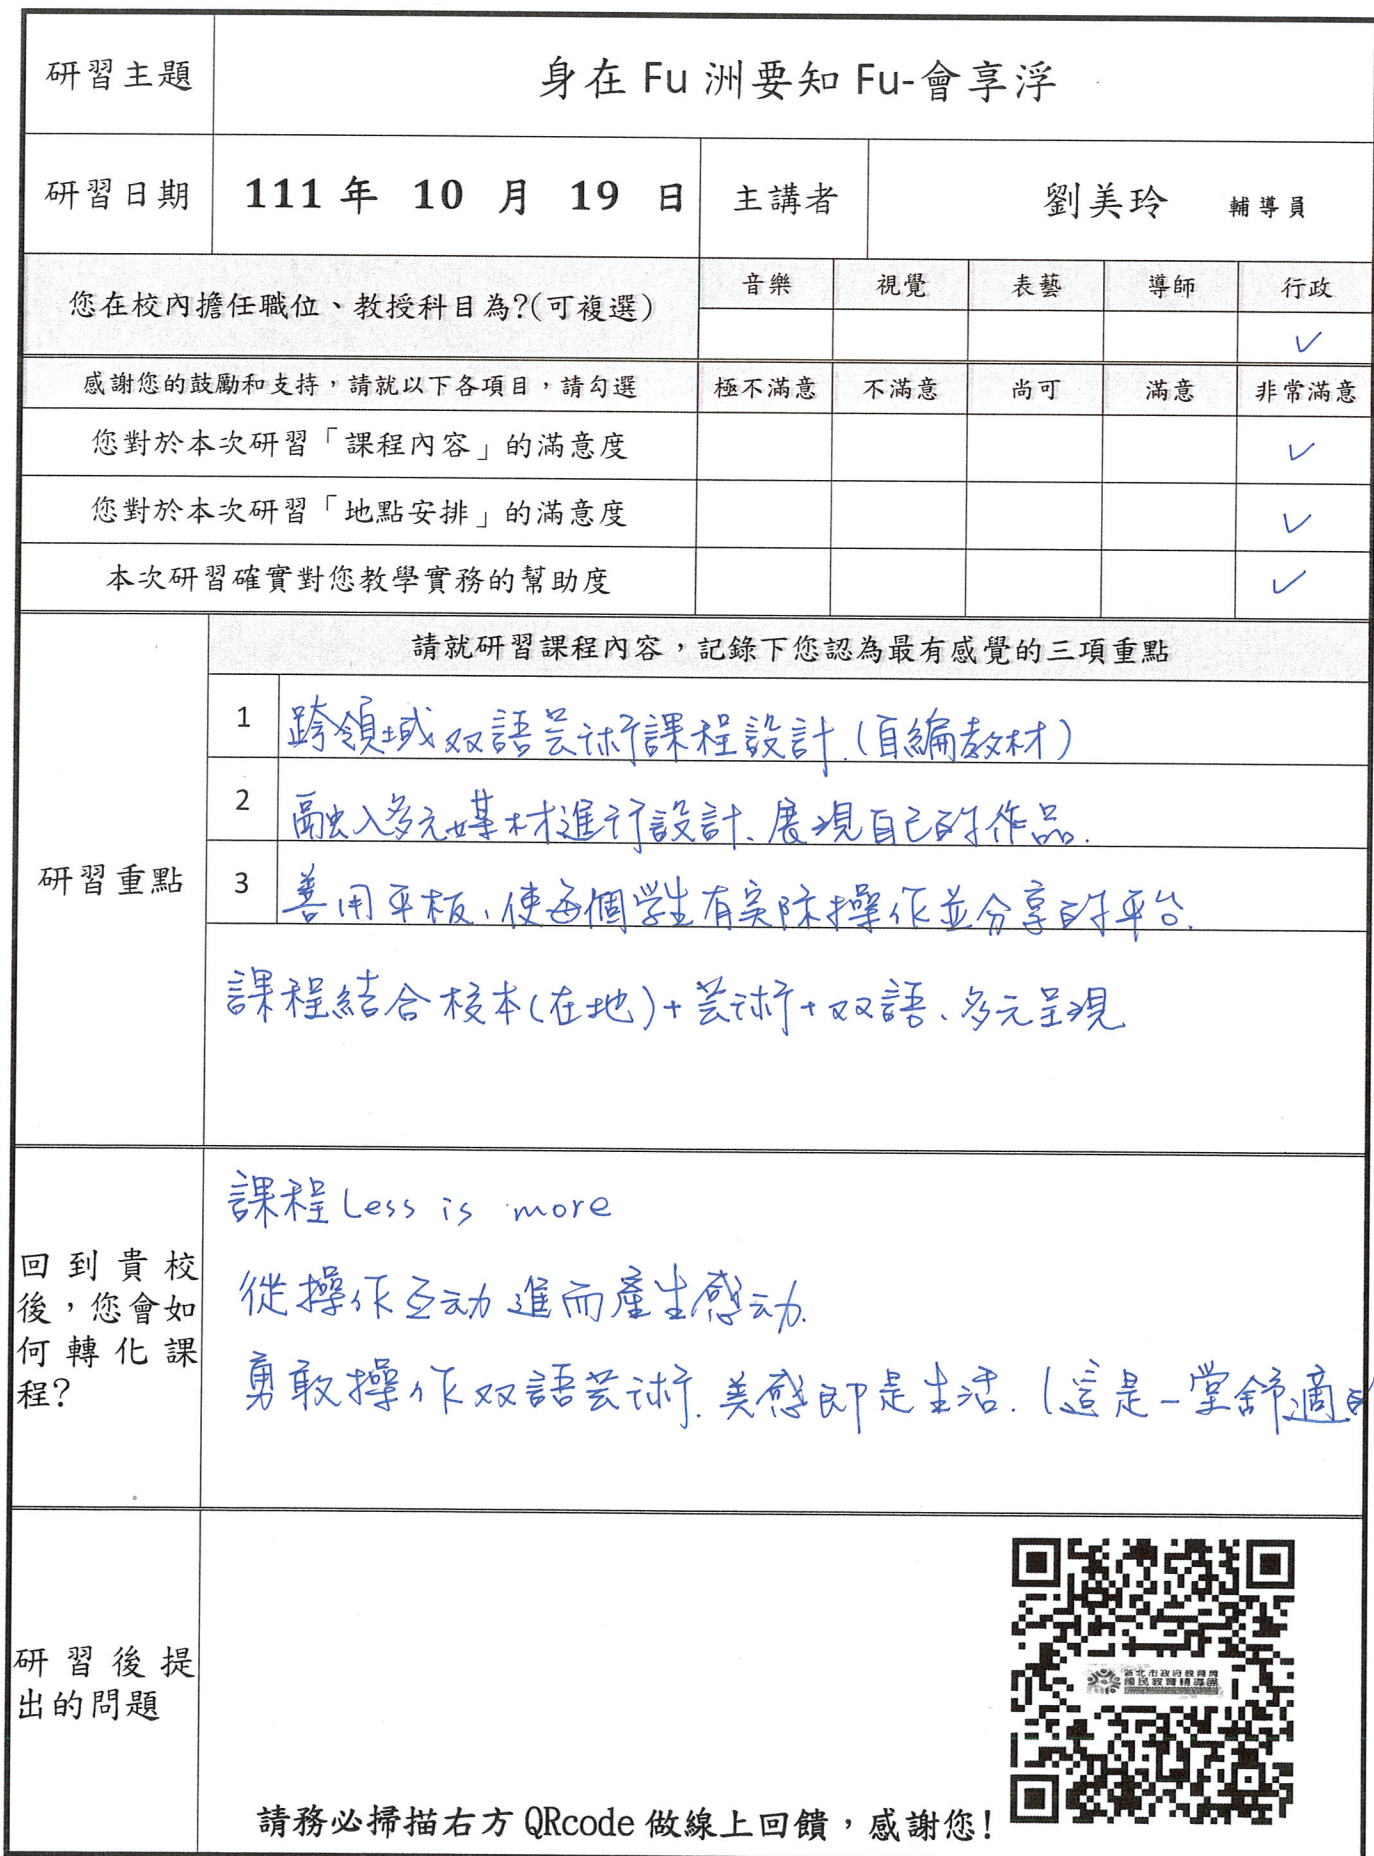 研習主題 身在 Fu 洲要知 Fu-會享浮
研習日期 111 年 10 月 19 日 主講者 劉美玲 輔導員
您在校內擔任職位、教授科目為?(可複選) 音樂 視覺 表藝 導師 行政
✓
感謝您的鼓勵和支持，請就以下各項目，請勾選 極不滿意 不滿意 尚可 滿意 非常滿意
您對於本次研習「課程內容」的滿意度 ✓
您對於本次研習「地點安排」的滿意度 ✓
本次研習確實對您教學實務的幫助度 ✓
請就研習課程內容，記錄下您認為最有感覺的三項重點
研習重點
1 跨領域双語芸術課程設計.(自編教材)
2 融入多元媒材進行設計、展現自己的作品.
3 善用平板、使每個学生有実际操作並分享的平台.
課程結合校本(在地)+芸術+双語、多元呈現
回到貴校
後，您會如
何轉化課
程?
課程 Less is more
從操作互动進而產生感动.
勇敢操作双語芸術.美感即是生活.(這是一堂舒適的
研習後提
出的問題
新北市政府教育局
國民教育輔導團
請務必掃描右方 QRcode 做線上回饋，感謝您!